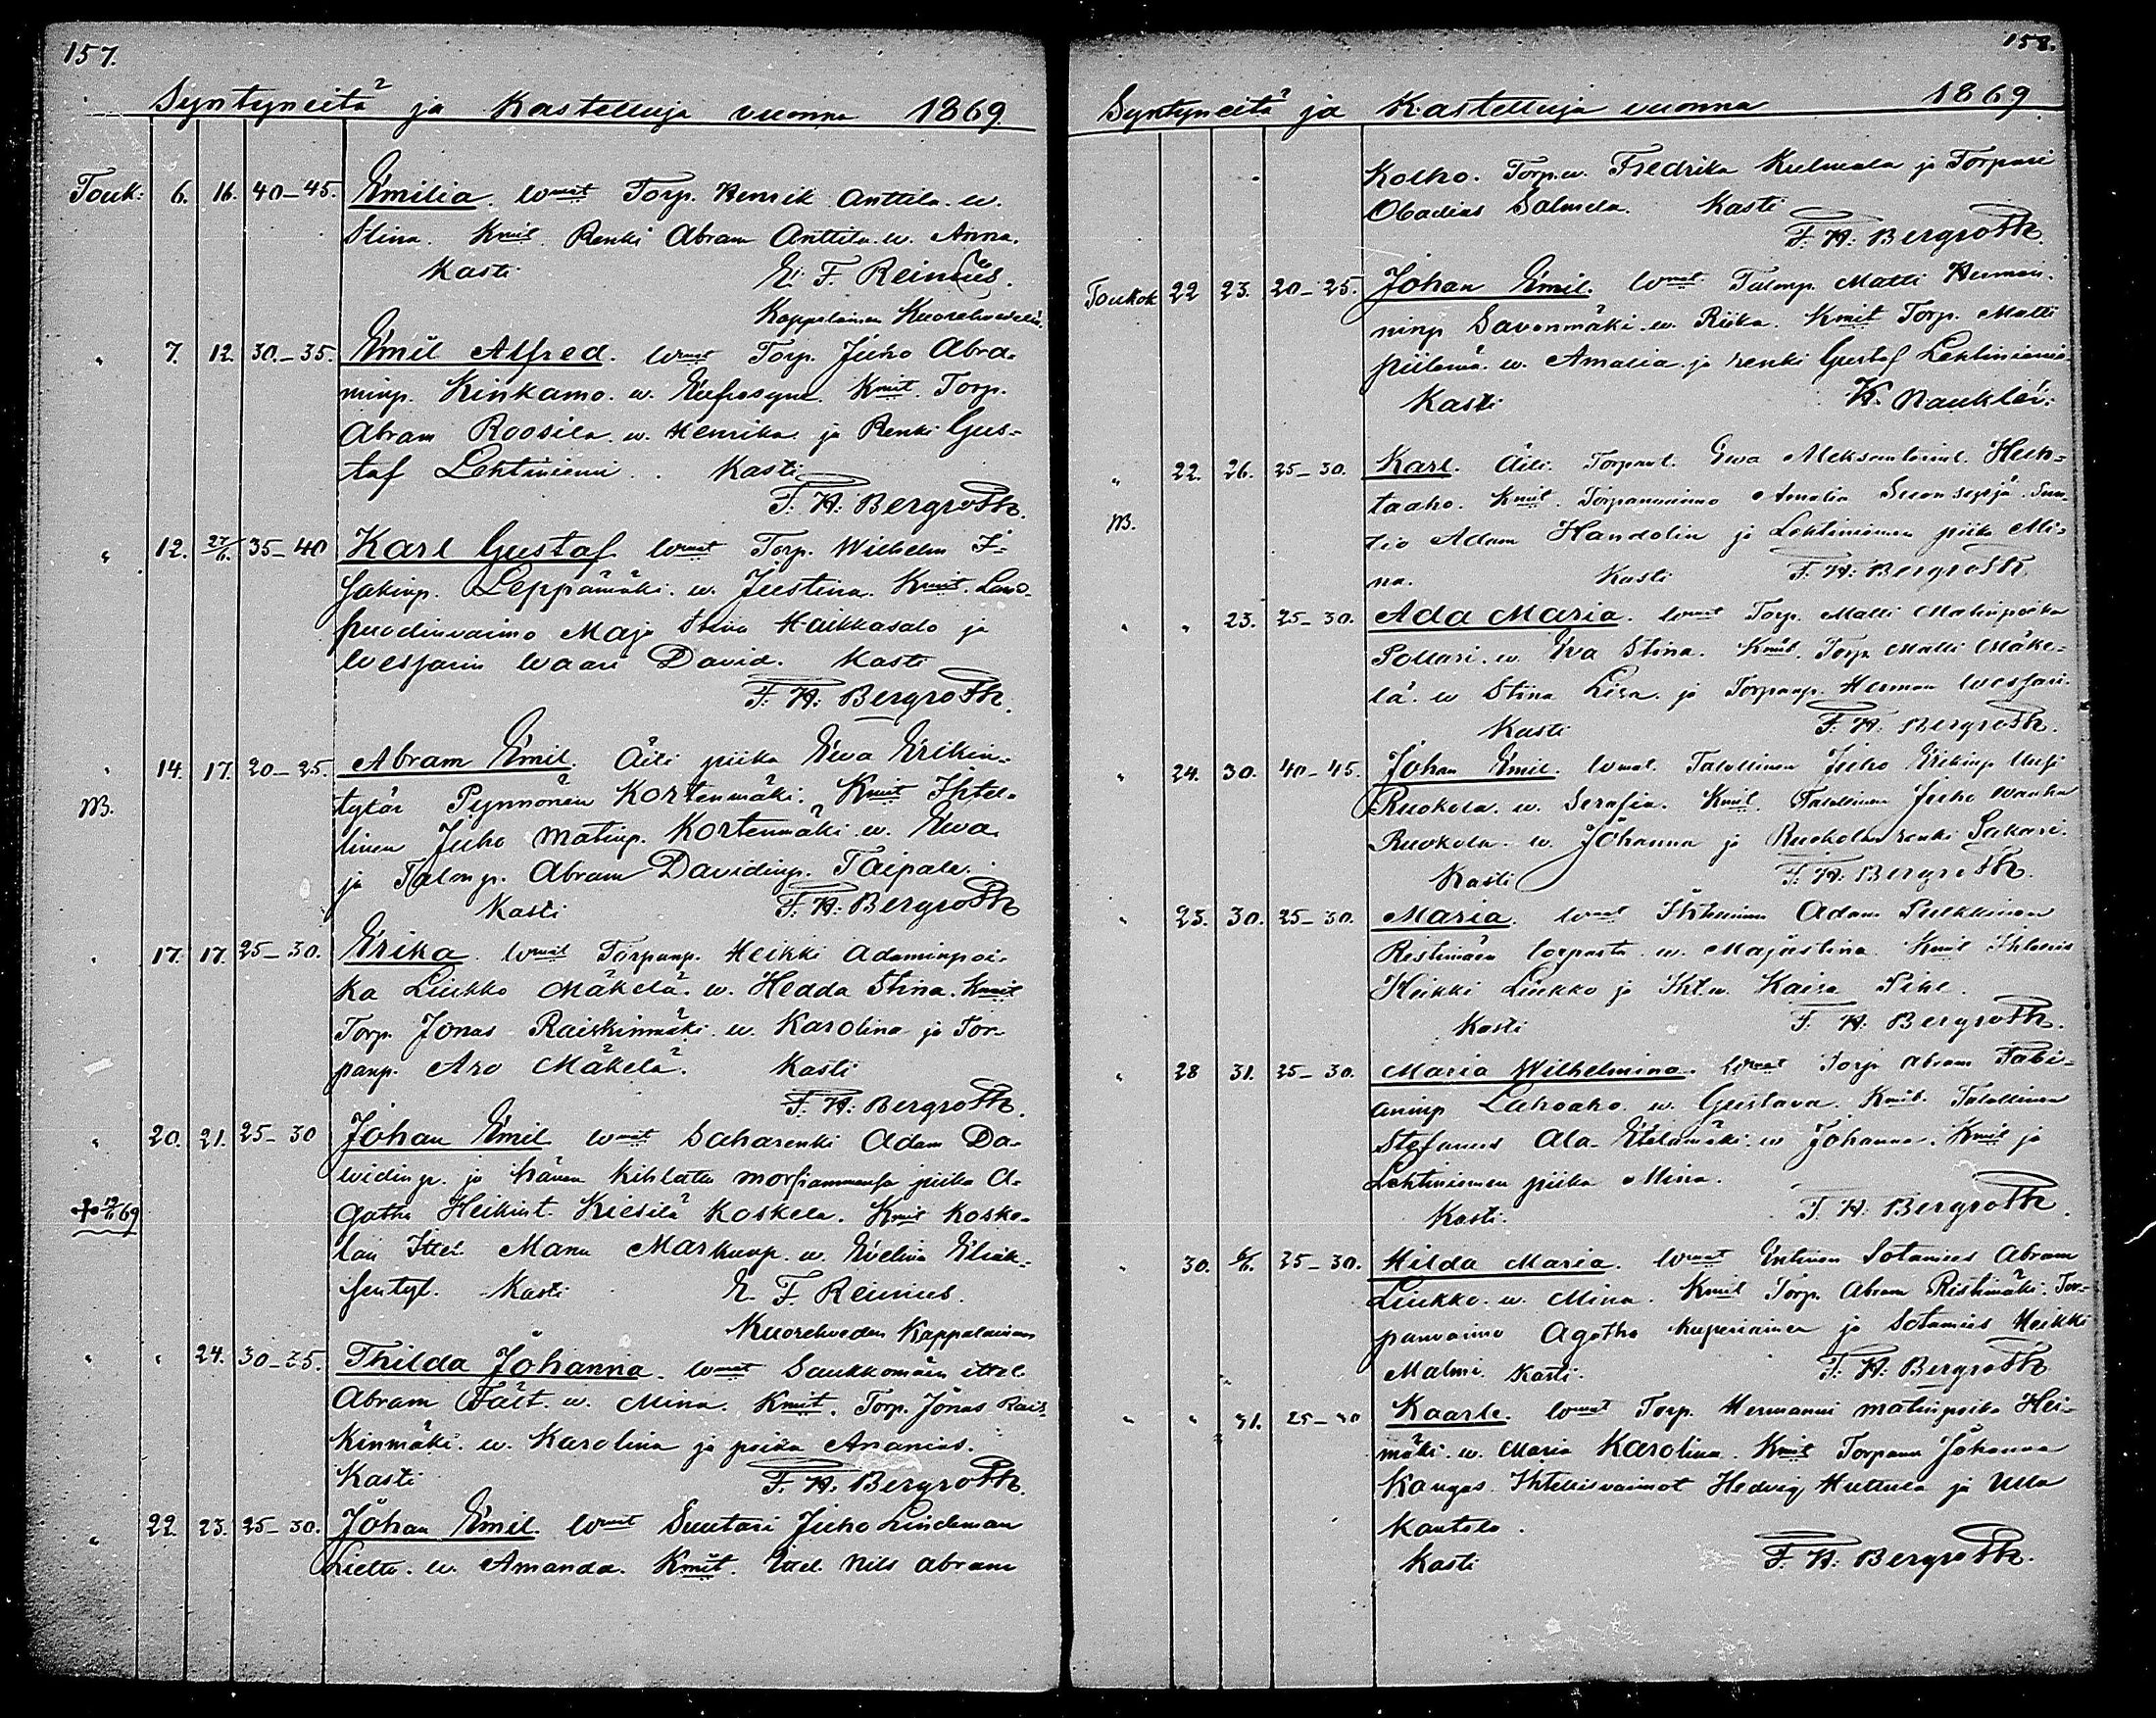 157.
Syntyneitä ja Kastettuja vuonna 1869.
Touk: 6. 16. 40-45. Emilia. Wmat Torp. Henrik Anttila. w.
Stina. Kmit. Renki Abram Anttila. w. Anna.
Kasti E. F. Reinius.
Kappalainen
" 7. 12. 30-35. Emil Alfred. Wmat Torp. Juho Abra-
minp. Kinkamo. w. Eufrosyne. Kmit. Torp.
Abram Roosila. w. Henrika. ja Renki Gus-
taf Lehtiniemi. Kasti
F. H. Bergroth.
" 12. 27/6. 35-40 Karl Gustaf. Wmat Torp. Wilhelm I-
sakinp. Leppämäki. w. Justina. Kmit.
Maja Stina Haikkasalo ja
Wessarin Waari David. Kasti
F. H. Bergroth.
" 14. 17. 20-25. Abram Emil. Äiti piika Ewa Erikin-
M. tytär Pynnönen Kortenmäki. Kmit Ihtel-
linen Juho Matinp. Kortenmäki w. Ewa.
ja Talonp. Abram Davidinp. Taipale.
Kasti F. H. Bergroth
" 17. 17. 25-30. Erika. Wmat Torpanp. Heikki Adaminpoi-
ka Liukko Mäkelä. w. Hedda Stina. Kmit
Torp. Jonas Raiskinmäki. w. Karolina ja Tor-
panp. Aro Mäkelä. Kasti
F. H. Bergroth.
" 20. 21. 25-30 Johan Emil Wmat Saharenki Adam Da-
widinp. ja hänen kihlattu morsiammensa piika A-
69 gatha Heikint. Kiesilä Koskela. Kmit Koske-
lan Ittel. Manu Markunp. w. Evelina
Kasti E. F. Reinius.
Kuoreveden Kappalainen
" " 24. 30-35. Thilda Johanna. Wmat Saukkomäen ittel.
Abram Fält. w. Mina. Kmit. Torp. Jonas Rais-
kinmäki. w. Karolina ja poika Ananias.
Kasti F. H. Bergroth.
" 22. 23. 25-30. Johan Emil. Wmat Suutari Juho Lindeman
w. Amanda. Kmit. Ittel. Nils Abram
158.
Syntyneitä ja Kastettuja vuonna 1869
Kolho. Torp.w. Fredrika Kulmala ja Torpari
Obadias Salmela. Kasti
F. H. Bergroth.
Toukok 22 23. 20-25. Johan Emil. Wmat Talonp. Matti Herman-
ninp Savonmäki. w. Riika. Kmit Torp. Matti
w. Amalia ja renki Gustaf Lehtiniemi
Kasti K. Naukler.
" 22. 26. 25-30. Karl. Äiti. Ewa
M. taaho. Kmit. Torpanvaimo Amalia
Adam Handolin ja Lehtiniemen piika Mi-
na. Kasti F. H. Bergroth
" " 23. 25-30. Ada Maria. Wmat Torp. Matti Matinpoika
Pollari. w. Eva Stina. Kmit. Torp. Matti Mäke-
lä. w Stina Lisa. ja Torpanp. Herman Wessari.
Kasti F. H. Bergroth.
" 24. 30. 40-45. Johan Emil. Wmat. Talollinen Juho Erikinp Uusi
Ruokola. w. Serafia. Kmit. Talollinen Juho Wanha
Ruokola. w. Johanna ja Ruokolan renki Sakari.
Kasti F. H. Bergroth.
" 25. 30. 25-30. Maria. Wmat Ihtellinen Adam Pulkkinen
Ristimäen torpasta. w. Majastina. Kmit
Heikki Liukko ja Iht.w. Kaisa Pihl.
Kasti F. H. Bergroth.
" 28 31. 25-30. Maria Wilhelmina. Wmat Torp Abram Fabi-
aninp Lahoaho. w. Gustava. Kmit. Talollinen
Stefanus Ala-Etelämäki. w Johanna. Kmit ja
Lehtiniemen piika Mina.
Kasti. F. H. Bergroth.
" 30. 6/6. 25-30. Hilda Maria. Wmat Entinen Sotamies Abram
Liukko. w. Mina. Kmit Torp. Abram Ristimäki. Tor-
panvaimo Agatha ja Sotamies Heikki
Malmi. Kasti. F. H. Bergroth
" " 31. 25-30 Kaarle. Wmat Torp. Hermanni Matinpoika Hei-
mäki. w. Maria Karolina. Kmit Johanna
Kangas. Hedvig Huttula ja Ulla
Kautola.
Kasti F. H. Bergroth.